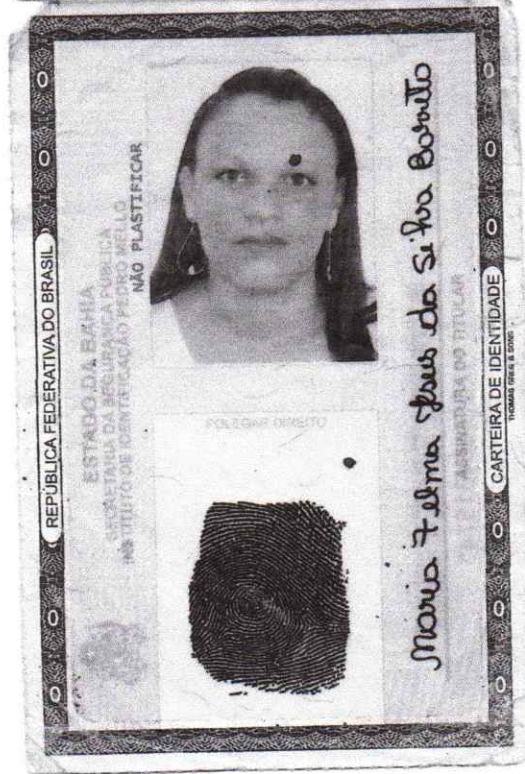 REPÚBLICA FEDERATIVA DO BRASIL
ESTADO DA BAHIA
SECRETARIA DA SEGURANÇA PÚBLICA
INSTITUTO DE IDENTIFICAÇÃO PEDRO MELLO
NÃO PLASTIFICAR
POLEGAR DIREITO
Maria Telma Jesus da Silva Barretto
ASSINATURA DO TITULAR
CARTEIRA DE IDENTIDADE
THOMAS GREG & SONS